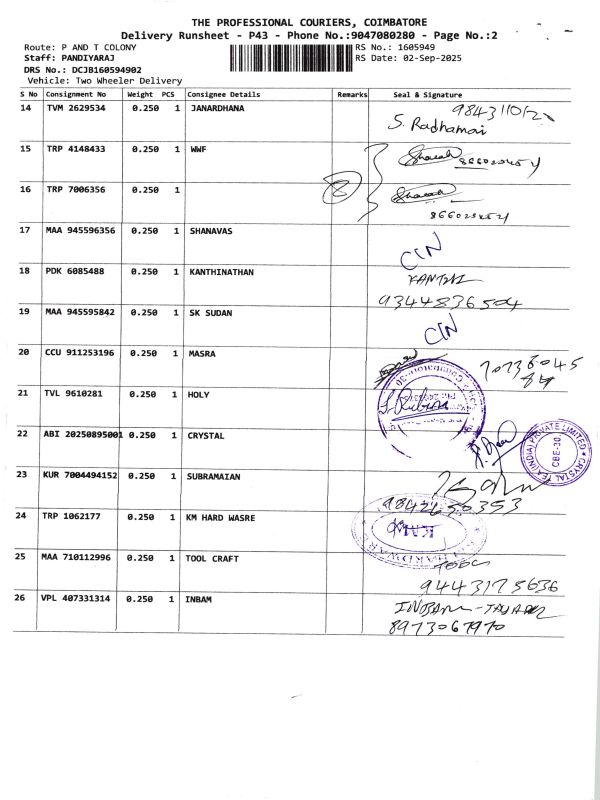 THE PROFESSIONAL COURIERS, COIMBATORE
Delivery Runsheet - P43 - Phone No.:9047080280 - Page No.:2
Route: P AND T COLONY RS No.: 1605949
Staff: PANDIYARAJ RS Date: 02-Sep-2025
DRS No.: DCJB160594902
Vehicle: Two Wheeler Delivery
S No Consignment No Weight PCS Consignee Details Remarks Seal & Signature
14 TVM 2629534 0.250 1 JANARDHANA
S. Radhamai
15 TRP 4148433 0.250 1 WWF
16 TRP 7006356 0.250 1
8
17 MAA 945596356 0.250 1 SHANAVAS CIN
18 PDK 6085488 0.250 1 KANTHINATHAN
9344836504
19 MAA 945595842 0.250 1 SK SUDAN CIN
20 CCU 911253196 0.250 1 MASRA
21 TVL 9610281 0.250 1 HOLY
22 ABI 20250895001 0.250 1 CRYSTAL
CRYSTAL TEA (INDIA) PRIVATE LIMITED
CBE-30.
23 KUR 7004494152 0.250 1 SUBRAMAIAN
9842650353
24 TRP 1062177 0.250 1 KM HARD WASRE
KM
25 MAA 710112996 0.250 1 TOOL CRAFT
9443175636
26 VPL 407331314 0.250 1 INBAM
8973067970